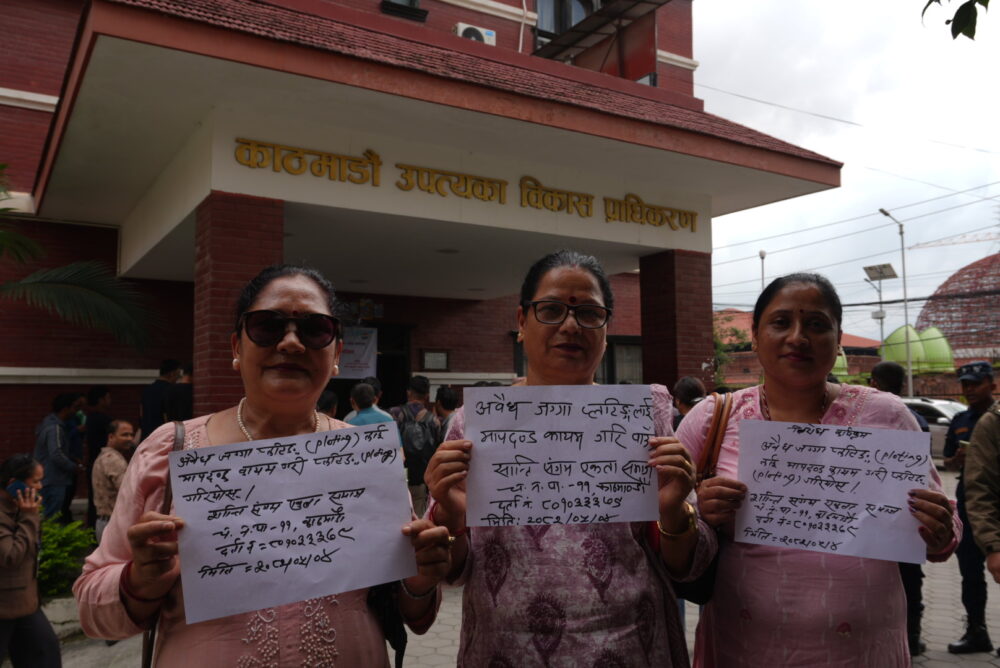 काठमाडौं उपत्यका विकास प्राधिकरण
अवैध जग्गा प्लटिङ (plotting) लाई
मापदण्ड कायम गरी प्लटिङ
गरियोस !
शान्ति संगम एकता समाज
च. न. पा -११, काठमाडौं
दर्ता नं = ८०१०२३३७९
मिति = २०८२/०५/०४
अवैध जग्गा प्लटिङलाई
मापदण्ड कायम गरि पाँउ
शान्ति संगम एकता समाज
च. न. पा. -११ काठमाडौं
दर्ता नं. ८०१०२३३७९
मिति: २०८२/०५/०४
अवैध जग्गा प्लटिङ (plotting)
लाई मापदण्ड कायम गरी प्लटिङ
गरियोस !
शान्ति संगम एकता समाज
च. न. पा -११, काठमाडौं
दर्ता नं = ८०१०२३३७९
मिति = २०८२/०५/०४